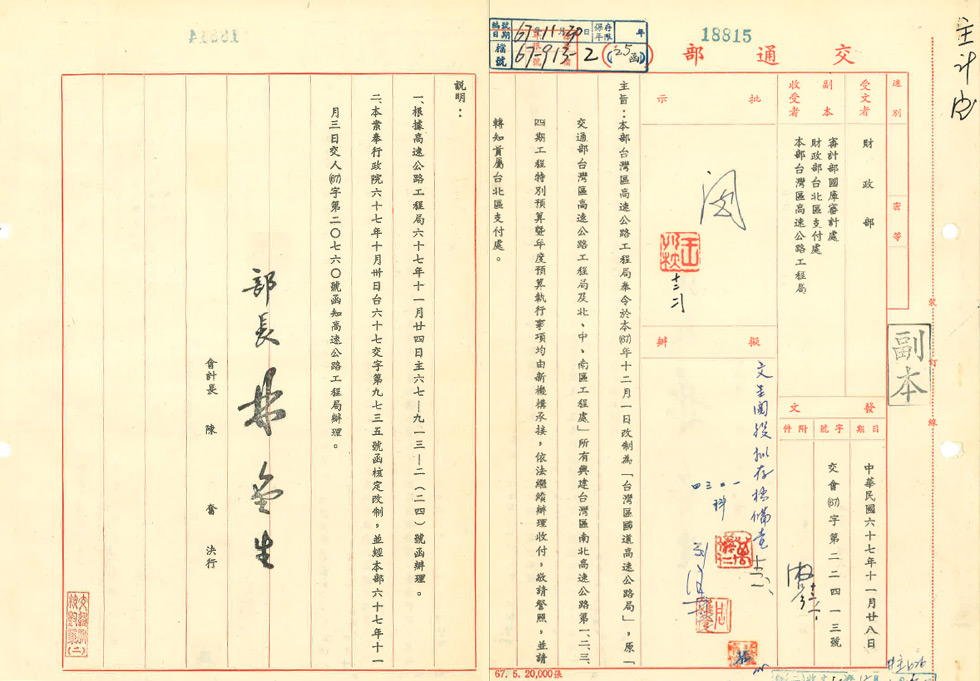 主計處
18815
交通部
速別
密等
受文者
財政部
副本
收受者
審計部國庫審計處
財政部台北區支付處
本部台灣區高速公路工程局
發文
日期
字號
附件
中華民國六十七年十一月廿八日
交會(67)字第二二四一三號
批示
閱
擬辦
文呈閱後擬存檔備查
裝
訂
線
副本
編號
日期
67年11月30日
保存
年限
年
檔號
67-913-2
(25函)
主旨：本部台灣區高速公路工程局奉令於本(67)年十二月一日改制為「台灣區國道高速公路局」，原「
交通部台灣區高速公路工程局及北、中、南區工程處」所有興建台灣區南北高速公路第一、二、三、
四期工程特別預算暨年度預算執行事項均由新機構承接，依法繼續辦理收付，敬請詧照，並請
轉知貴屬台北區支付處。
67. 5. 20,000張
說明：
一、根據高速公路工程局六十七年十一月廿四日主六七—九一三—二（二四）號函辦理。
二、本案奉行政院六十七年十月卅日台六十七交字第九七三五號函核定改制，並經本部六十七年十一
月三日交人(67)字第二０七六０號函知高速公路工程局辦理。
部長林金生
會計長 陳奮 決行